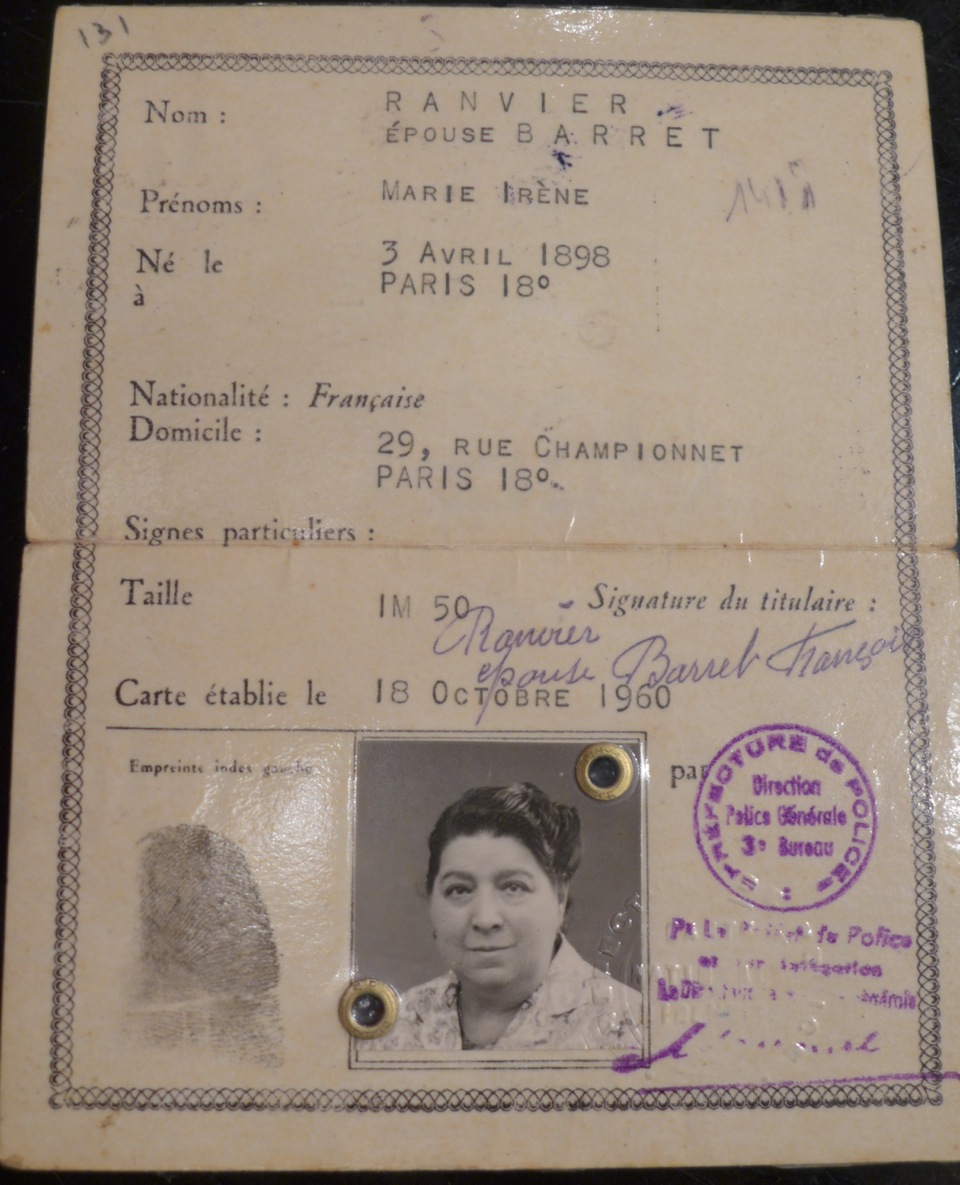 131
Nom : RANVIER
ÉPOUSE BARRET
Prénoms : MARIE IRÈNE
Né le 3 AVRIL 1898
à PARIS 18º
Nationalité : Française
Domicile : 29, RUE CHAMPIONNET
PARIS 18º
Signes particuliers :
Taille 1M 50 Signature du titulaire :
Ranvier
epouse Barret
Carte établie le 18 OCTOBRE 1960
Empreinte index gauche
par
PRÉFECTURE de POLICE
Direction
Police Générale
3e Bureau
de Police